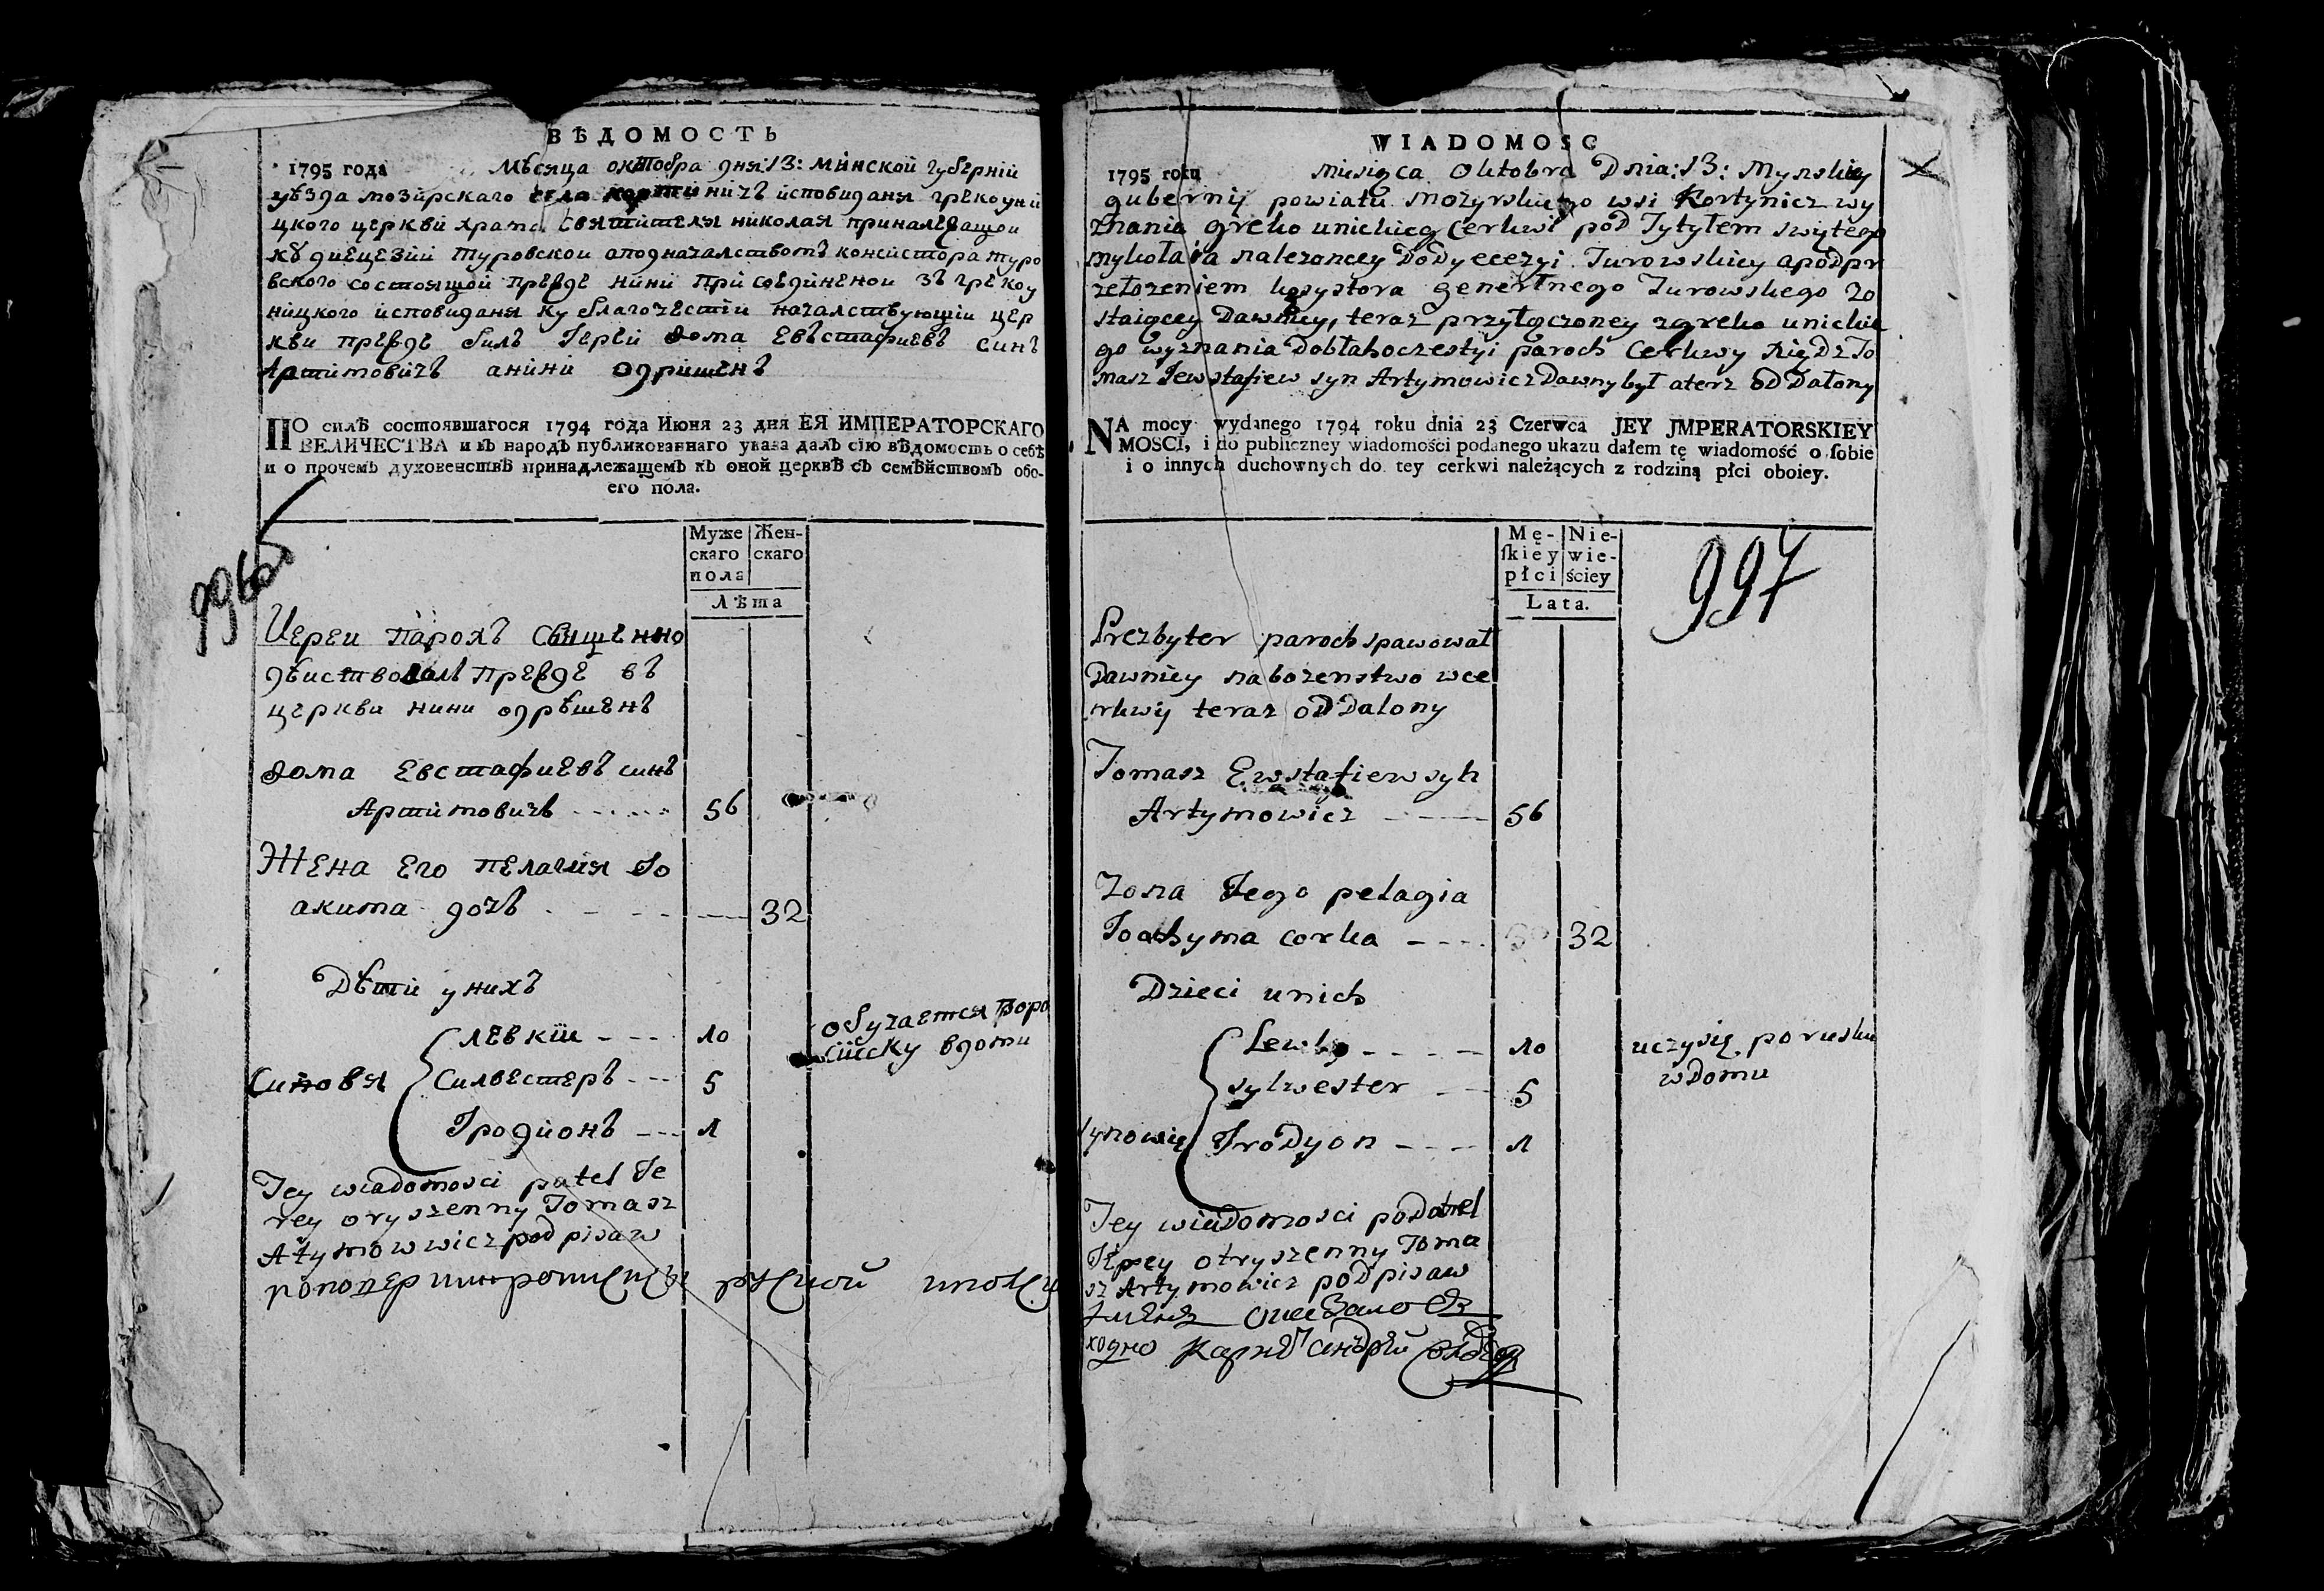 ВѢДОМОСТЬ
1795 года мѣсяца октобра дня: 13: минской губернїи
уѣзда мозирскаго села кортиничъ исповиданя грекоуни
цкого церкви храма святителя николая приналежащои
къ диецезии туровскои а подначалствомъ консистора туро
вского состоящой прежде нини при соединенои зъ грекоу
ницкого исповиданя ку благочестїи началствующїи цер
кви прежде билъ Іерей Фома Евъстафиевъ синъ
Артимовичъ а нини одришенъ
ПО силѣ состоявшагося 1794 года Июня 23 дня ЕЯ ИМПЕРАТОРСКАГО
ВЕЛИЧЕСТВА и въ народъ публикованнаго указа далъ сїю вѣдомость о себѣ
и о прочемъ духовенствѣ принадлежащемъ къ оной церквѣ съ семѣйствомъ обо-
его пола.
Муже Жен-
скаго скаго
пола
Лѣта
996
Иереи парохъ священно
дѣиствовалъ прежде въ
церкви нини одрѣшенъ
Фома Евстафиевъ синъ
Артимовичъ 56
Жена его пелагия Іо
акима дочь 32
Дѣти у нихъ
левкїи 10 обучается поро
сїиску вдоми
Синовя Силвестеръ 5
Іродионъ 1
Tey wiadomosci patel Je
rey oryszenny Tomasz
Atymowwicz podpisaw
WIADOMOSC
1795 roku miesięca Oktobra Dnia: 13: Mynskiey
gubernij powiatu mozyrskiego wsi Kortynicz wy
znania greko unickieg Cerkwi pod Tytyłem swytego
mykołaia nalezoncey Do Dyecezyi Turowskiey a podpr
zełozeniem kosystora generłnego Turowskego zo
staiącey Dawniey, teraz przyłączoney zgreko unickie
go wyznania Dobłahoczestyi paroch Cerkwy xiędz To
masz Jewstafiew syn Artymowicz Dawny był a terz od Dałony
NA mocy wydanego 1794 roku dnia 23 Czerwca JEY JMPERATORSKIEY
MOSCI, i do publiczney wiadomości podanego ukazu dałem tę wiadomość o sobie
i o innych duchownych do tey cerkwi należących z rodziną płci oboiey.
Mę- Nie-
skiey wie-
płci ściey
Lata.
997
Prezbyter paroch spawował
Dawniey nabozenstwo wce
rkwij teraz od Dalony
Tomasz Ewstafiew syn
Artymowicz 56
Zona Jego pelagia
Joachyma corka 32
Dzieci unich
Lewky 10 uczysię porusku
wDomu
synowie sylwester 5
JroDyon 1
Tey wiadomosci poDatel
Jerey otryszenny Toma
sz Artymowicz podpisaw